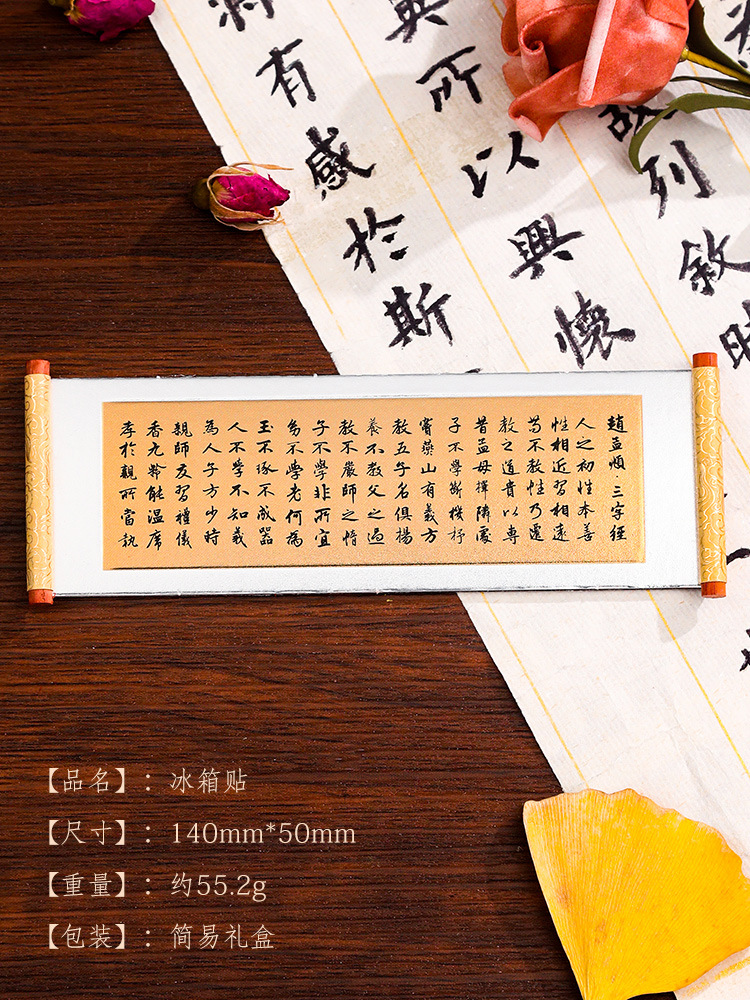 故列敘時
所以興懷
有感於斯
趙孟頫·三字經
人之初性本善
性相近習相遠
苟不教性乃遷
教之道貴以專
昔孟母擇隣處
子不學斷機杼
竇燕山有義方
教五子名俱揚
養不教父之過
教不嚴師之惰
子不學非所宜
幼不學老何為
玉不琢不成器
人不學不知義
為人子方少時
親師友習禮儀
香九齡能温席
孝於親所當執
【品名】：冰箱贴
【尺寸】：140mm*50mm
【重量】：约55.2g
【包装】：简易礼盒